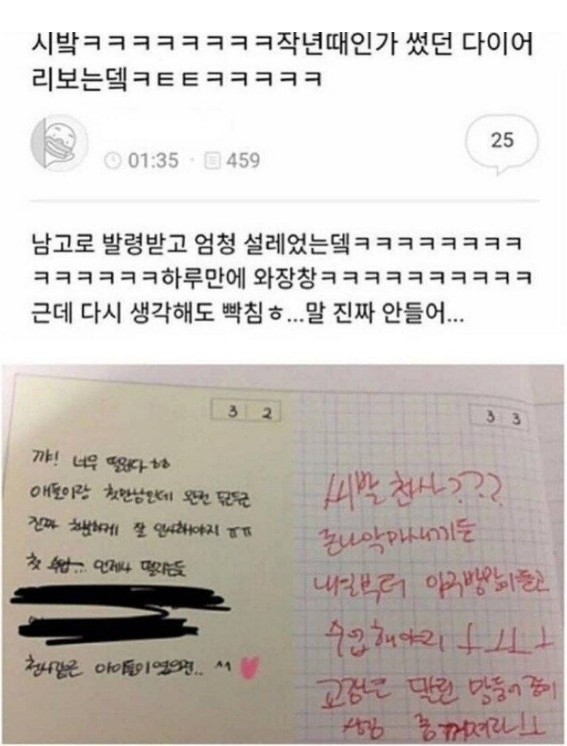 시밬ㅋㅋㅋㅋㅋㅋㅋㅋ작년때인가 썼던 다이어
리보는뎈ㅋㅌㅌㅋㅋㅋㅋㅋ
01:35 · 459
25
남고로 발령받고 엄청 설레었는뎈ㅋㅋㅋㅋㅋㅋㅋ
ㅋㅋㅋㅋㅋㅋ하루만에 와장창ㅋㅋㅋㅋㅋㅋㅋㅋㅋㅋ
근데 다시 생각해도 빡침ㅎ...말 진짜 안들어...
3 2
꺄! 너무 떨린다 ㅎㅎ
애들이랑 첫만남인데 완전 두근두근
진짜 친절하게 잘 인사해야지 ㅠㅠ
첫 수업... 언제나 떨리는듯
천사같은 아이들이였으면.. ^^ ♥
3 3
씨발 천사???
존나 악마새끼들
내일부터 야구방망이들고
수업해야리 ㅗㅗㅜㅗ
고삐 풀린 망둥이